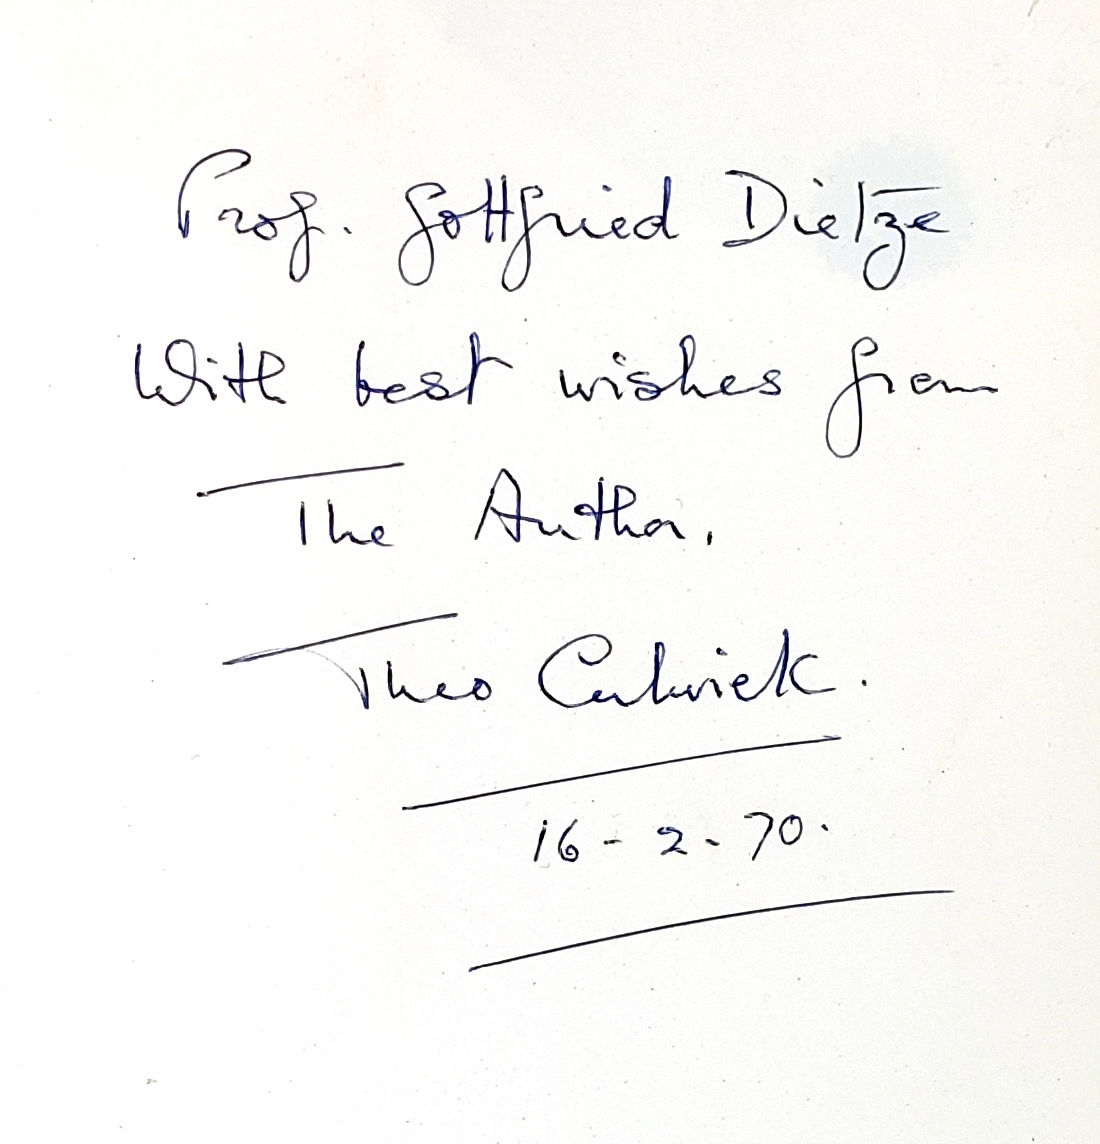 Prof. Gottfried Dietze
With best wishes from
The Author.
Theo Culwick.
16-2-70.